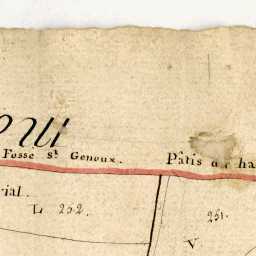 oui
Fosse St Genoux. Pâtis du ha
rial.
L 252. 251.
V